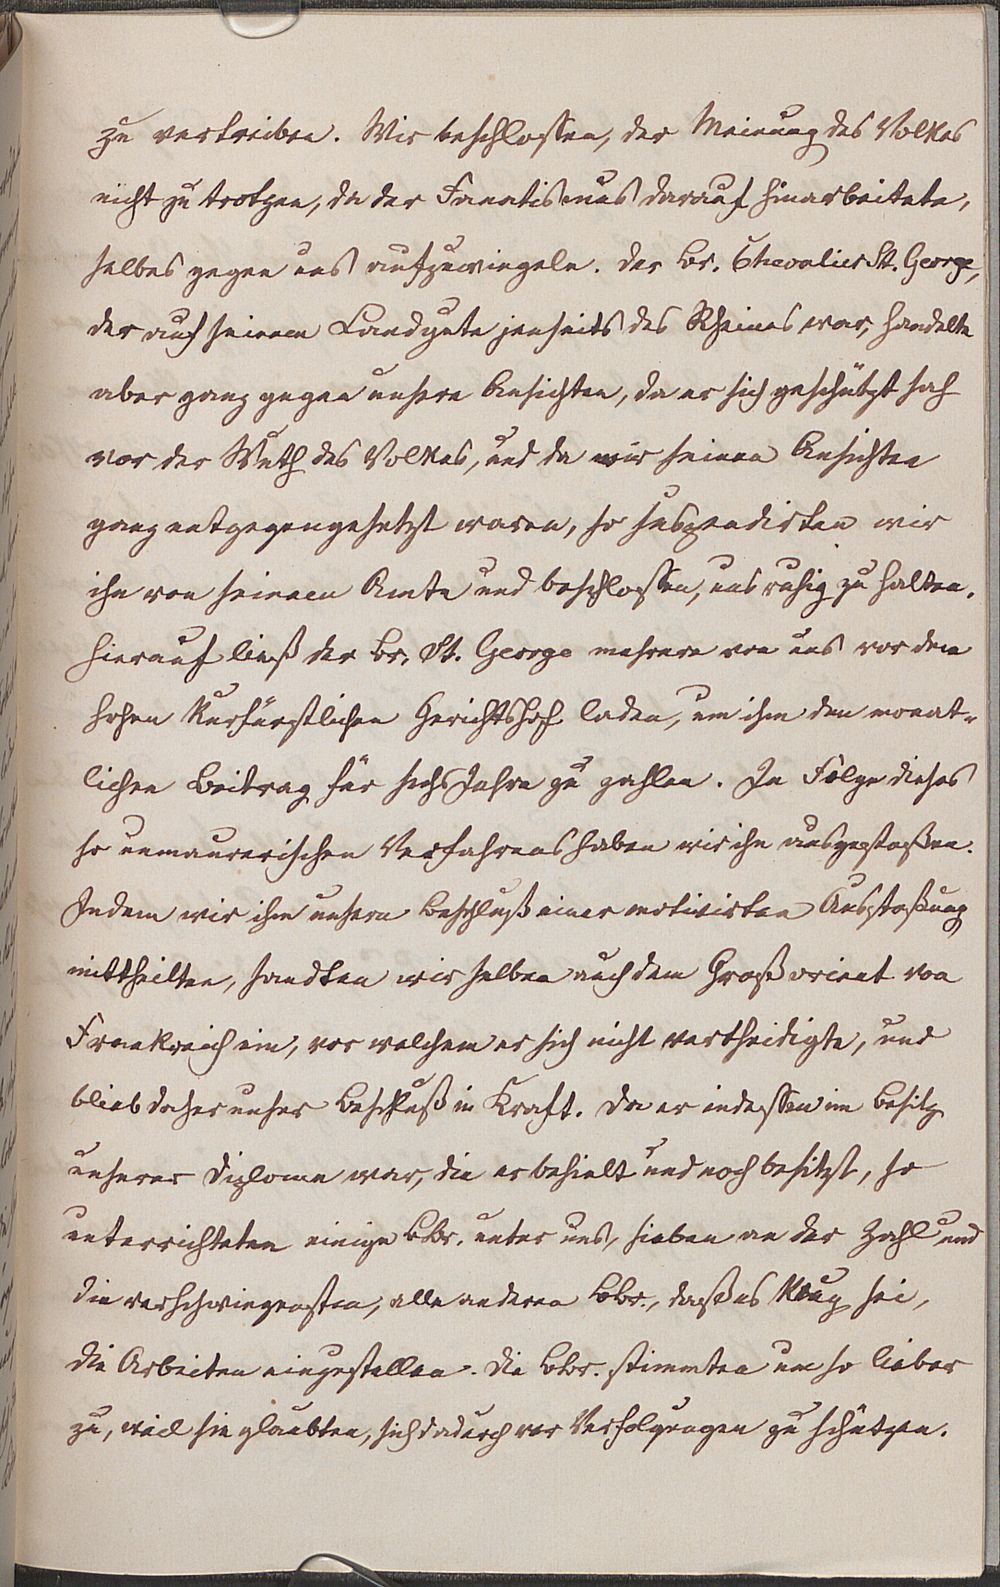 zu vertreiben. Wir beschlossen, der Meinung des Volkes
nicht zu trotzen, da der Fanatismus darauf hinarbeitete,
selbes gegen uns aufzuwiegeln. Der Br. Chevalier St. George,
der auf seinem Landgute jenseits des Rheines war, handelte
aber ganz gegen unsere Ansichten, da er sich geschützt sah
vor der Wuth des Volkes, und da wir seinen Ansichten
ganz entgegengesetzt waren, so suspendirten wir
ihn von seinem Amte und beschlossen, uns ruhig zu halten.
Hierauf ließ der Br. St. George mehrere von uns vor den
hohen Kurfürstlichen Gerichtshof laden, um ihm den monat-
lichen Beitrag für sechs Jahre zu zahlen. In Folge dieses
so unmaurerischen Verfahrens haben wir ihn ausgestoßen.
Indem wir ihm unsern Beschluß einer motivirten Ausstoßung
mittheilten, sandten wir selben auch dem Großorient von
Frankreich ein, vor welchem er sich nicht vertheidigte, und
blieb daher unser Beschluß in Kraft. Da er indessen im Besitz
unserer Diplome war, die er behielt und noch besitzt, so
unterrichteten einige BBr. unter uns, sieben an der Zahl und
die verschwiegensten, alle anderen BBr., daß es klug sei,
die Arbeiten einzustellen. Die BBr. stimmten um so lieber
zu, weil sie glaubten, sich dadurch vor Verfolgungen zu schützen.